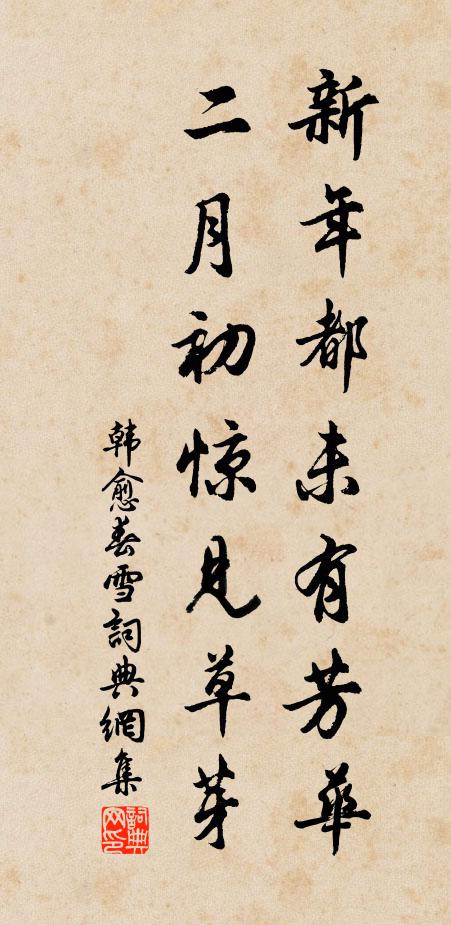 新年都未有芳華
二月初惊見草芽
韓愈春雪詞典網集
詞典网印